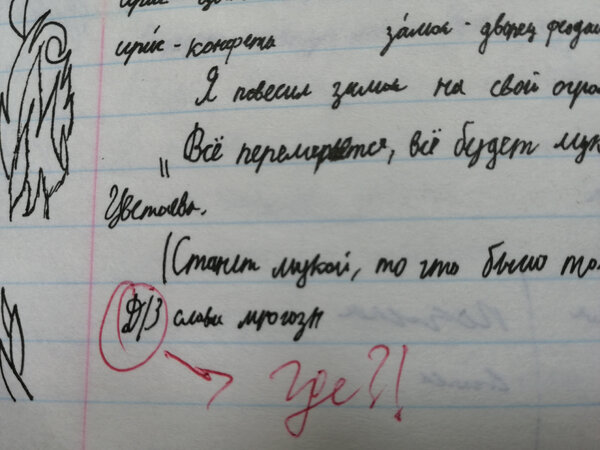 ирис - конфета за́мок - дворец феодал
Я повесил замок на свой огро
"Всё перемелется, всё будет мук
Цветаева.
(Станет мукой, то что было то
Д/З слова многозн
где?!